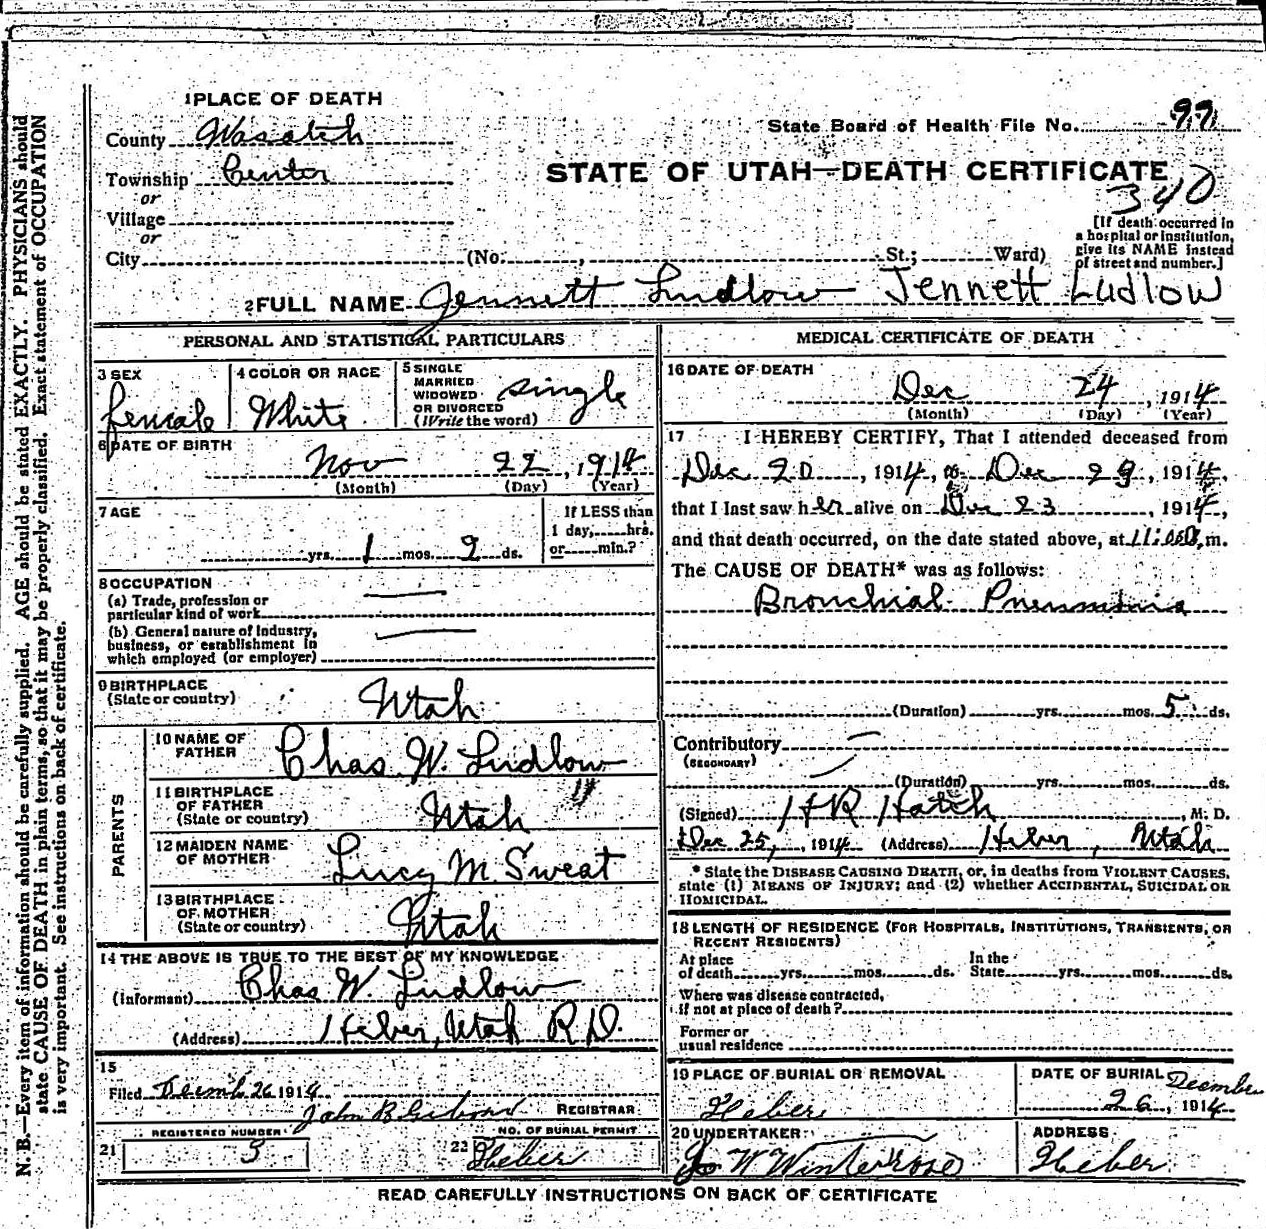 N. B.—Every item of information should be carefully supplied. AGE should be stated EXACTLY. PHYSICIANS should
state CAUSE OF DEATH in plain terms, so that it may be properly classified. Exact statement of OCCUPATION
is very important. See instructions on back of certificate.
1 PLACE OF DEATH
County Wasatch
Township Center
or
Village
or
City (No. , St.; Ward)
State Board of Health File No. 99
STATE OF UTAH—DEATH CERTIFICATE
340
[If death occurred in
a hospital or institution,
give its NAME instead
of street and number.]
2 FULL NAME Jennett Ludlow Jennett Ludlow
PERSONAL AND STATISTICAL PARTICULARS
3 SEX
female
4 COLOR OR RACE
White
5 SINGLE
MARRIED
WIDOWED
OR DIVORCED
(Write the word)
single
6 DATE OF BIRTH
Nov 22, 1914
(Month) (Day) (Year)
7 AGE
yrs. 1 mos. 2 ds.
If LESS than
1 day, hrs.
or min.?
8 OCCUPATION
(a) Trade, profession or
particular kind of work
(b) General nature of industry,
business, or establishment in
which employed (or employer)
9 BIRTHPLACE
(State or country)
Utah
PARENTS
10 NAME OF
FATHER
Chas W. Ludlow
11 BIRTHPLACE
OF FATHER
(State or country)
Utah
12 MAIDEN NAME
OF MOTHER
Lucy M. Sweat
13 BIRTHPLACE
OF MOTHER
(State or country)
Utah
14 THE ABOVE IS TRUE TO THE BEST OF MY KNOWLEDGE
(Informant) Chas W. Ludlow
(Address) Heber, Utah R.D.
15
Filed 26 1914
John B REGISTRAR
REGISTERED NUMBER
21 3
NO. OF BURIAL PERMIT
22 Heber
MEDICAL CERTIFICATE OF DEATH
16 DATE OF DEATH
Dec 24, 1914
(Month) (Day) (Year)
17 I HEREBY CERTIFY, That I attended deceased from
Dec 20, 1914, to Dec 1914,
that I last saw her alive on Dec 23, 1914,
and that death occurred, on the date stated above, at m.
The CAUSE OF DEATH* was as follows:
Bronchial Pneumonia
(Duration) yrs. mos. 5 ds.
Contributory
(SECONDARY)
(Duration) yrs. mos. ds.
(Signed) H R Hatch, M. D.
Dec 25, 1914 (Address) Heber, Utah
* State the DISEASE CAUSING DEATH, or, in deaths from VIOLENT CAUSES,
state (1) MEANS OF INJURY; and (2) whether ACCIDENTAL, SUICIDAL OR
HOMICIDAL.
18 LENGTH OF RESIDENCE (FOR HOSPITALS, INSTITUTIONS, TRANSIENTS, OR
RECENT RESIDENTS)
At place
of death yrs. mos. ds.
In the
State yrs. mos. ds.
Where was disease contracted,
if not at place of death?
Former or
usual residence
19 PLACE OF BURIAL OR REMOVAL
Heber
DATE OF BURIAL December
26, 1914
20 UNDERTAKER
W Winterrose
ADDRESS
Heber
READ CAREFULLY INSTRUCTIONS ON BACK OF CERTIFICATE